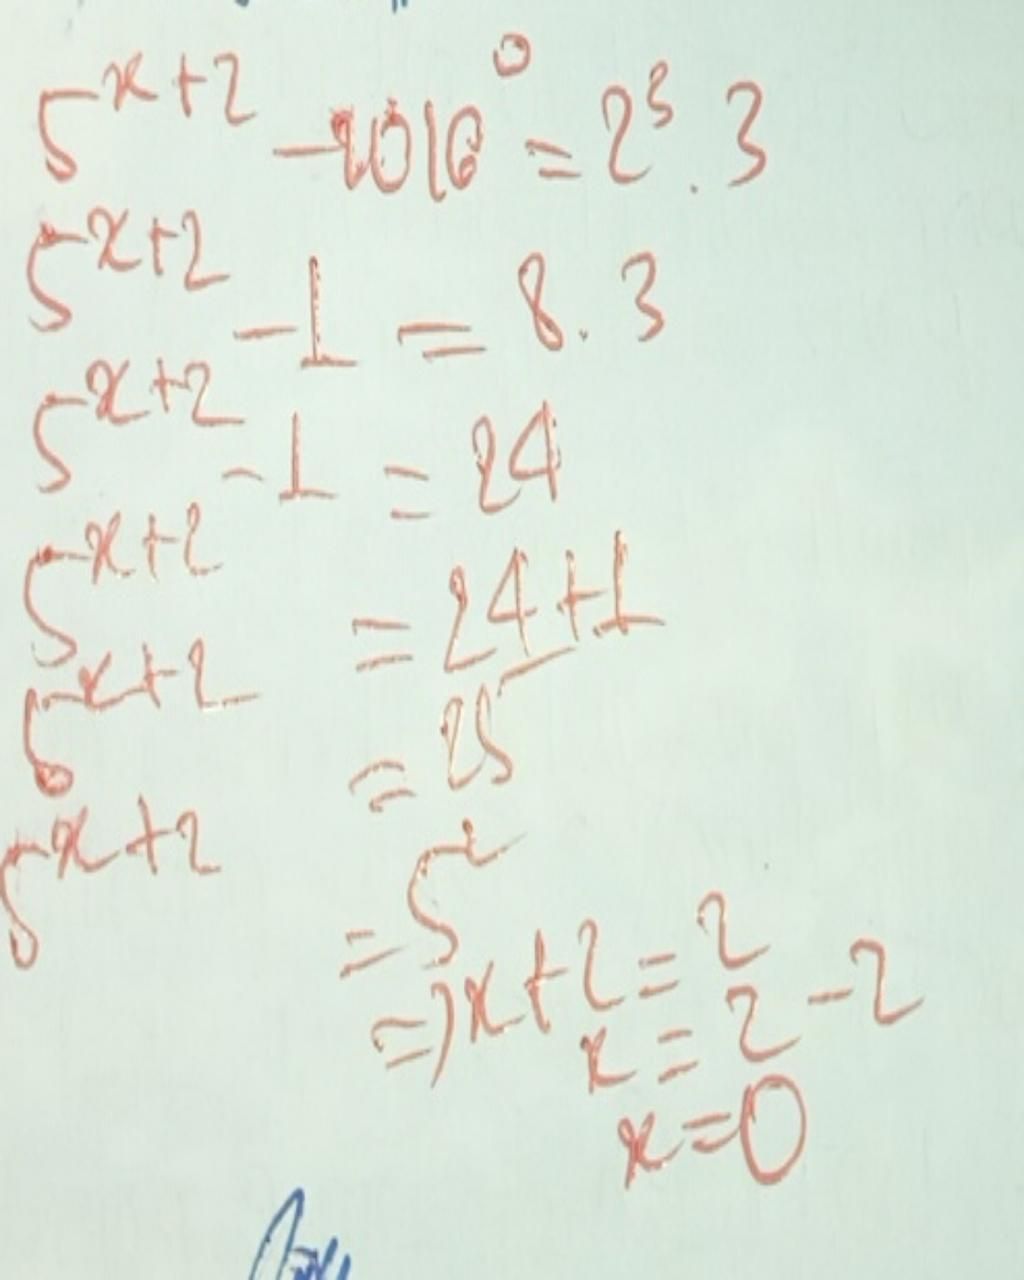 5^{x+2} - 2016^0 = 2^3 . 3
5^{x+2} - 1 = 8 . 3
5^{x+2} - 1 = 24
5^{x+2} = 24 + 1
5^{x+2} = 25
5^{x+2} = 5^2
=> x + 2 = 2
x = 2 - 2
x = 0